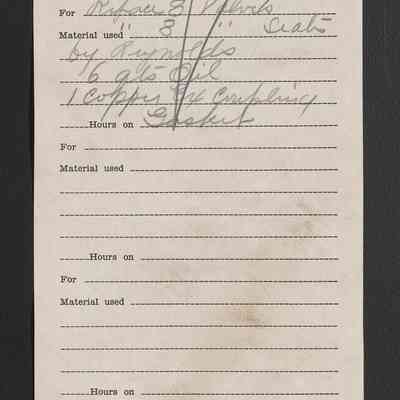 For Reface 8 Valves
Material used " 8 " Seats
by Reynolds
6 qts Oil
1 Copper Ex Coupling
Hours on Gasket
For
Material used
Hours on
For
Material used
Hours on